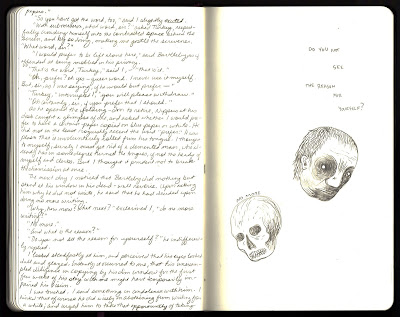 papers."
"So you have got the word, too," said I, slightly excited.
"With submission, what word, sir?" asked Turkey, respect-
fully crowding himself into the contracted space behind the
screen, and by so doing, making me jostle the scrivener.
"What word, sir?"
"I would prefer to be left alone here," said Bartleby, as if
offended at being mobbed in his privacy.
"That's the word, Turkey," said I, "that's it."
"Oh, prefer? oh yes - queer word. I never use it myself.
But, sir, as I was saying, if he would but prefer -"
"Turkey," interrupted I, "you will please withdraw."
"Oh certainly, sir, if you prefer that I should."
As he opened the folding-door to retire, Nippers at his
desk caught a glimpse of me, and asked whether I would pre-
fer to have a certain paper copied on blue paper or white. He
did not in the least roguishly accent the word "prefer." It was
plain that it involuntarily rolled from his tongue. I thought
to myself, surely I must get rid of a demented man, who al-
ready has in some degree turned the tongues, if not the heads of
myself and clerks. But I thought it prudent not to break
the dismission at once.
The next day I noticed that Bartleby did nothing but
stand at his window in his dead-wall revery. Upon asking
him why he did not write, he said that he had decided upon
doing no more writing.
"Why, how now? What next?" exclaimed I, "do no more
writing?"
"No more."
"And what is the reason?"
"Do you not see the reason for yourself?" he indifferent-
ly replied.
I looked steadfastly at him, and perceived that his eyes looked
dull and glazed. Instantly it occurred to me, that his unexam-
pled diligence in copying by his dim window for the first
few weeks of his stay with me might have temporarily im-
paired his vision.
I was touched. I said something in condolence with him. I
hinted that of course he did wisely in abstaining from writing for
a while; and urged him to take that opportunity of taking
DO YOU NOT
SEE
THE REASON
FOR
YOURSELF?